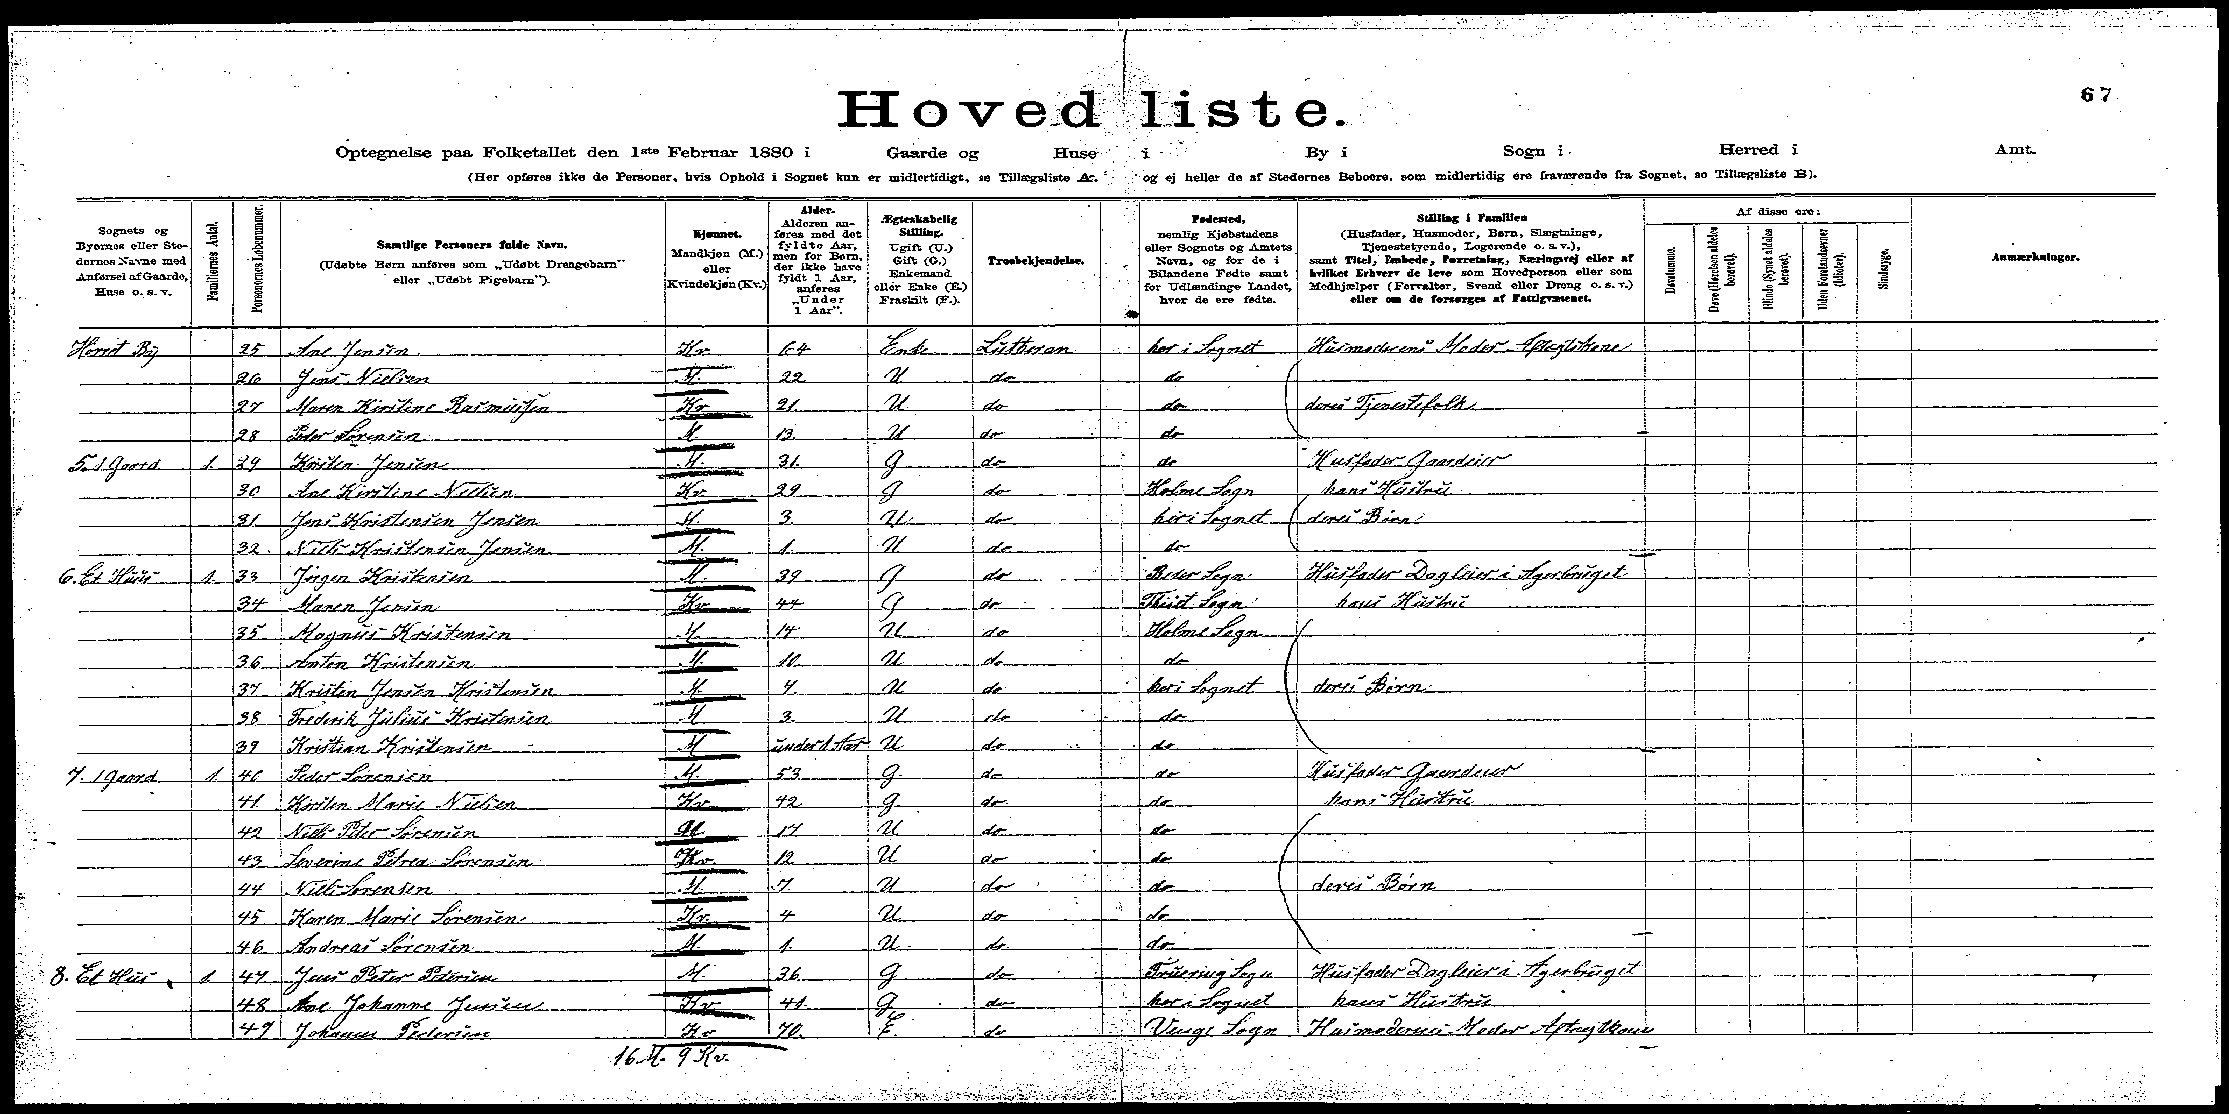 67
Hovedliste.
Optegnelse paa Folketallet den 1ste Februar 1880 i Gaarde og Huse i By i Sogn i Herred i Amt.
(Her opføres ikke de Personer, hvis Ophold i Sognet kun er midlertidigt, se Tillægsliste A. og ej heller de af Stedernes Beboere, som midlertidig ere fraværende fra Sognet, se Tillægsliste B).
Sognets og Byernes eller Stedernes Navne med Anførsel af Gaarde, Huse o. s. v.
Familiernes Antal.
Personernes Løbenummer.
Samtlige Personers fulde Navn. (Udøbte Børn anføres som „Udøbt Drengebarn" eller „Udøbt Pigebarn").
Kjønnet. Mandkjøn (M.) eller Kvindekjøn (Kv.)
Alder. Alderen anføres med det fyldte Aar, men for Børn, der ikke have fyldt 1 Aar, anføres „Under 1 Aar".
Ægteskabelig Stilling. Ugift (U.) Gift (G.) Enkemand eller Enke (E.) Fraskilt (F.).
Trosbekjendelse.
Fødested, nemlig Kjøbstadens eller Sognets og Amtets Navn, og for de i Bilandene Fødte samt for Udlændinge Landet, hvor de ere fødte.
Stilling i Familien (Husfader, Husmoder, Børn, Slægtninge, Tjenestetyende, Logerende o. s. v.), samt Titel, Embede, Forretning, Næringsvej eller af hvilket Erhverv de leve som Hovedperson eller som Medhjælper (Forvalter, Svend eller Dreng o. s. v.) eller om de forsørges af Fattigvæsenet.
Af disse ere:
Døvstumme.
Døve (Hørelsen aldeles berøvet).
Blinde (Synet aldeles berøvet).
Uden Forstandsevner (Idioter).
Sindssyge.
Anmærkninger.
Horret By 25 Ane Jensen Kv 64 Enke Lutheran her i Sognet Husmoderens Moder Aftægtskone
26 Jens Nielsen M. 22 U do do
27 Maren Kirstine Rasmussen Kv 21 U do do deres Tjenestefolk
28 Peder Sørensen M. 13 U do do
5. 1 Gaard 1 29 Kristen Jensen M. 31 G do do Husfader Gaardeier
30 Ane Kirstine Nielsen Kv 29 G do Holme Sogn hans Hustru
31 Jens Kristensen Jensen M. 3 U do her i Sognet deres Børn
32 Niels Kristensen Jensen M. 1 U do do
6. Et Huus 1 33 Jørgen Kristensen M. 39 G do Beder Sogn Husfader Dagleier i Agerbruget
34 Maren Jensen Kv 44 G do Thiist Sogn hans Hustru
35 Magnus Kristensen M 14 U do Holme Sogn
36 Anton Kristensen M. 10 U do do
37 Kristen Jensen Kristensen M. 7 U do her i Sognet deres Børn
38 Frederik Julius Kristensen M 3 U do do
39 Kristian Kristensen M under 1 Aar U do do
7. 1 Gaard 1 40 Peder Sørensen M. 53 G do do Husfader Gaardeier
41 Kirsten Marie Nielsen Kv 42 G do do hans Hustru
42 Niels Peter Sørensen M. 17 U do do
43 Severine Petrea Sørensen Kv 12 U do do
44 Niels Sørensen M 7 U do do deres Børn
45 Karen Marie Sørensen Kv. 4 U do do
46 Andreas Sørensen M 1 U do do
8. Et Hus 1 47 Jens Peter Pedersen M. 36 G do Fruering Sogn Husfader Dagleier i Agerbruget
48 Ane Johanne Jensen Kv 41 G do her i Sognet hans Hustru
49 Johanne Pedersen Kv 70 E. do Vinge Sogn Husmoderens Moder Aftægtkone
16 M. 9 Kv.